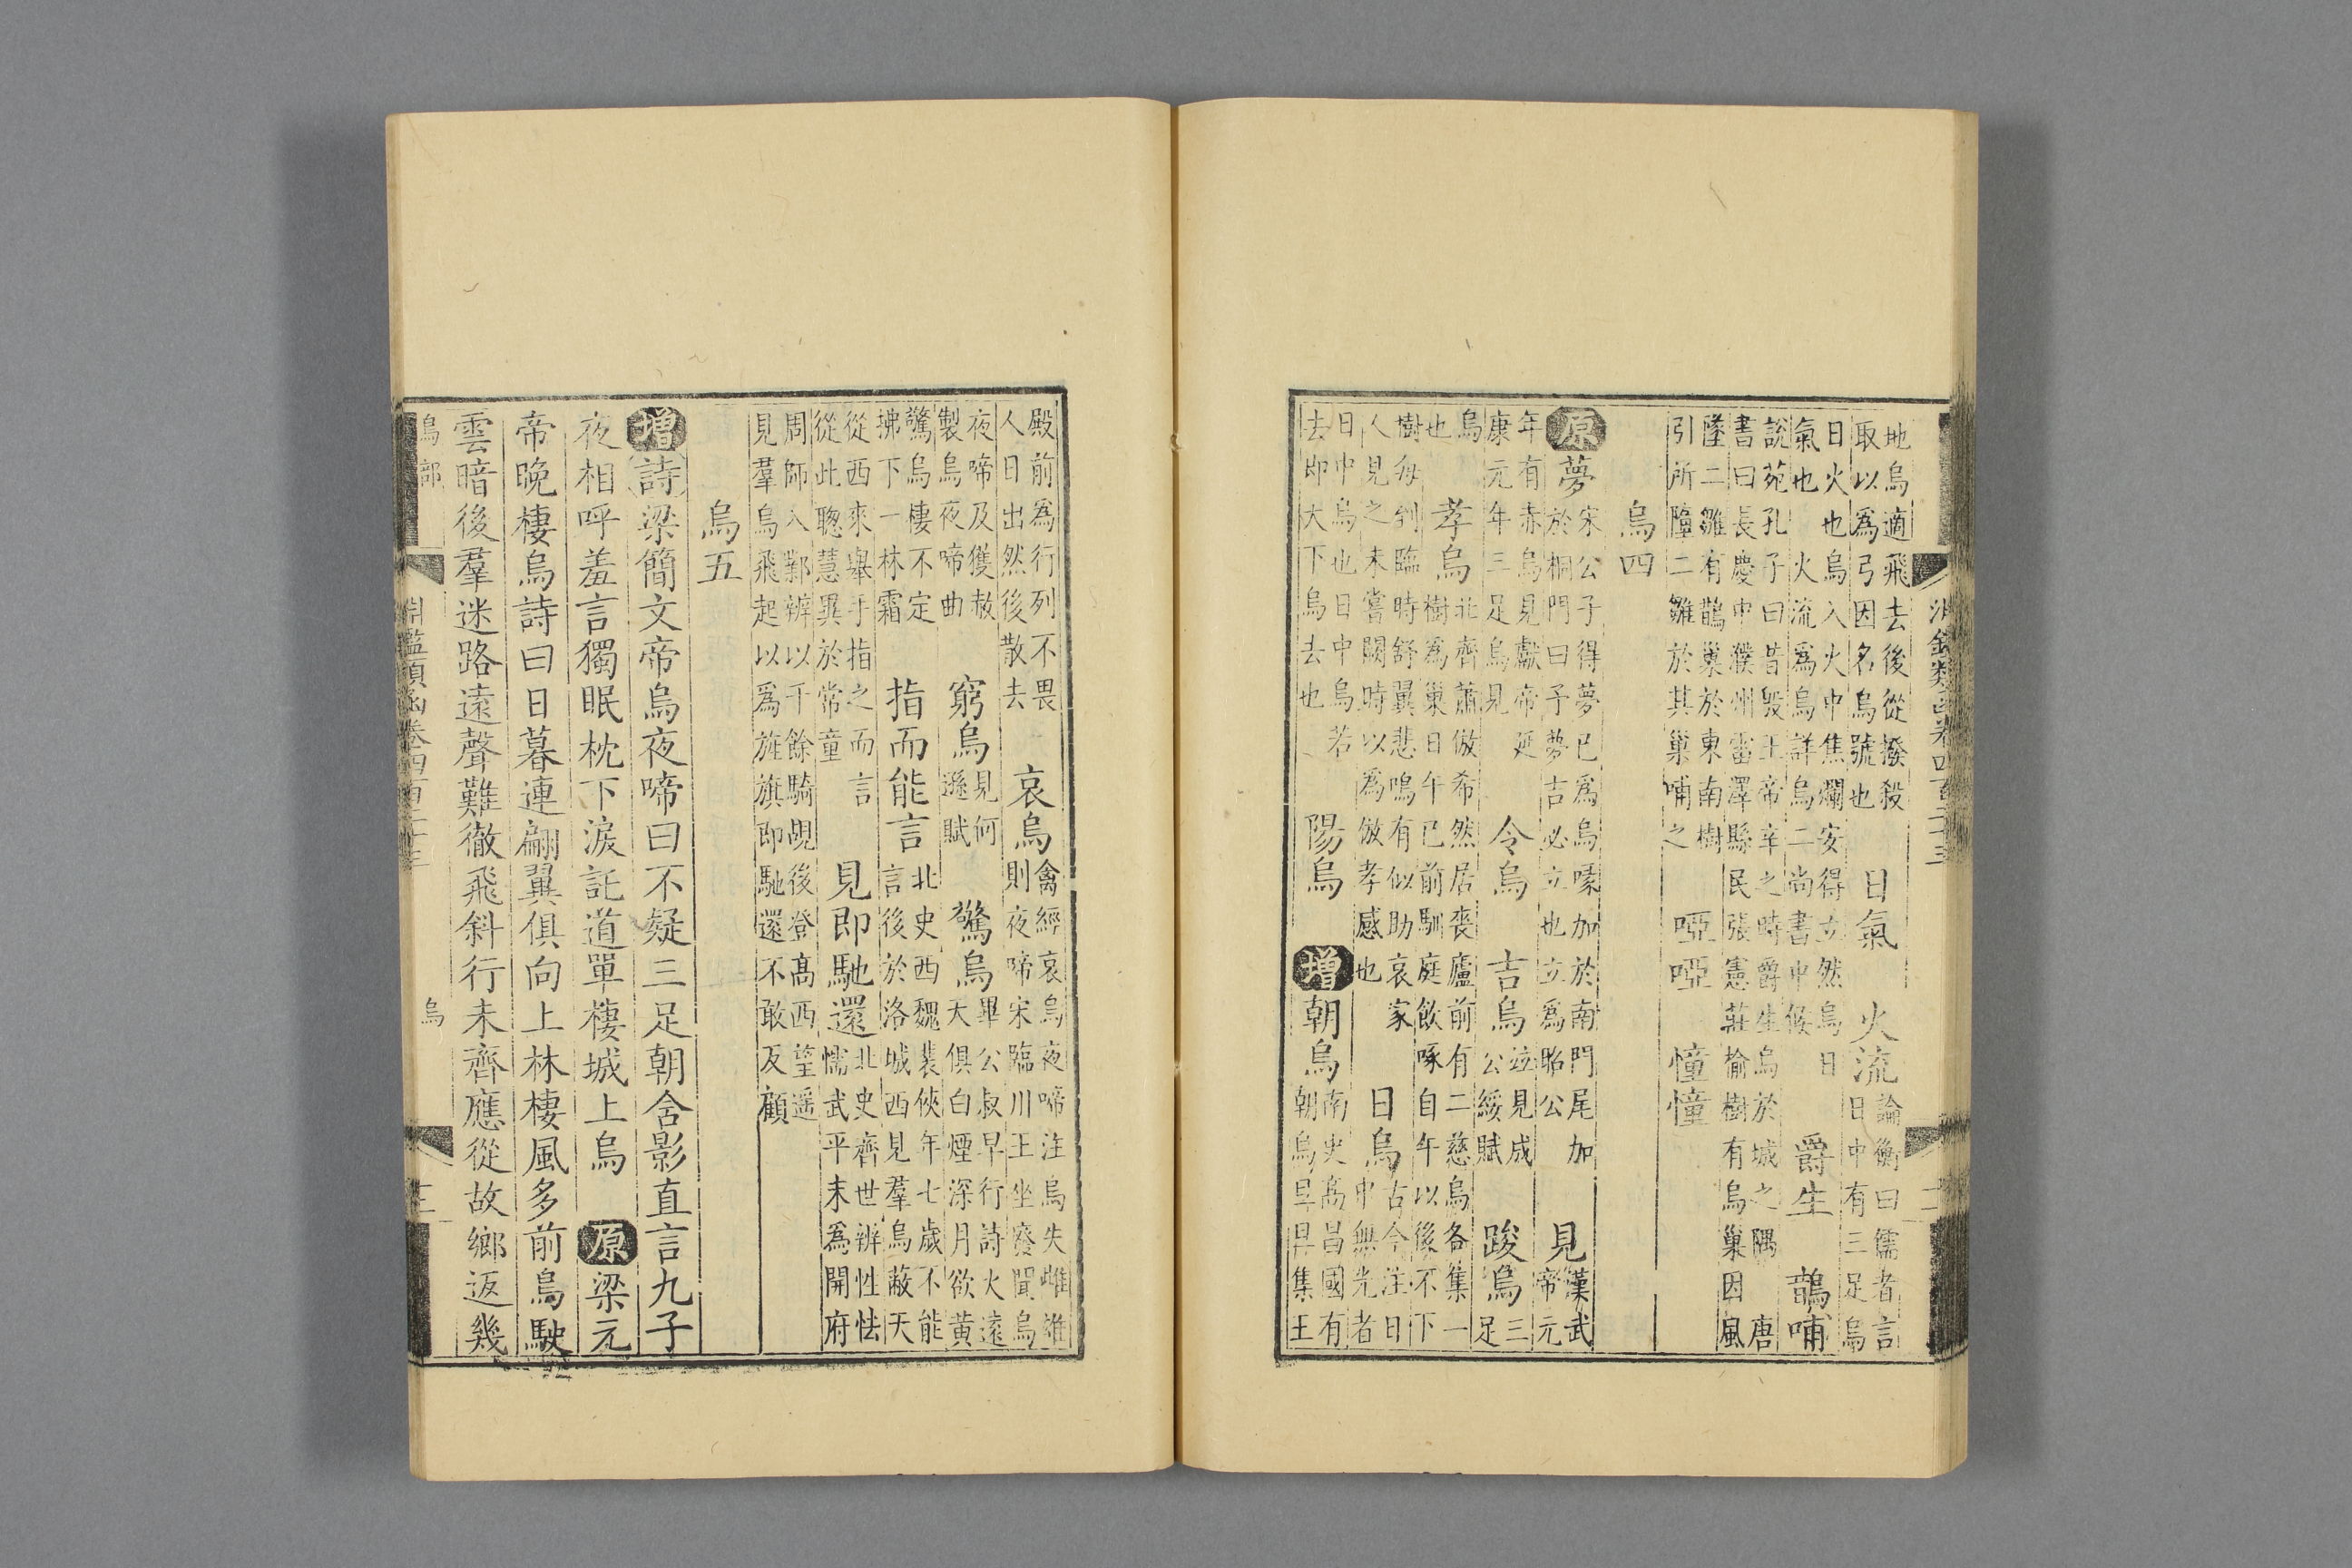 淵鑑類函卷四百二十三
地烏適飛去後從撥殺
取以爲弓因名烏號也
日氣 火流
論衡曰儒者言
日中有三足烏
日火也烏入火中焦爛安得立然烏日
氣也 火流爲烏詳烏二尚書中候
爵生 鵲哺
說苑孔子曰昔殷王帝辛之時爵生烏於城之隅 唐
書曰長慶中濮州雷澤縣民張憲莊榆樹有烏巢因風
墜二雛有鵲巢於東南樹
引所墮二雛於其巢哺之
啞啞 憧憧
烏四
原夢
宋公子得夢已爲烏喙加於南門尾加
於桐門曰子夢吉必立也立爲昭公
見
漢武
帝元
年有赤烏見獻帝延
康元年三足烏見
令烏 吉烏
竝見成
公綏賦
踆烏
三
足
烏
也
孝烏
北齊蕭倣希然居喪廬前有二慈烏各集一
樹爲巢日午已前馴庭飲啄自午以後不下
樹每到臨時舒翼悲鳴有似助哀家
人見之未嘗闕時以爲倣孝感也
日烏
古今注日
中無光者
日中烏也日中烏若
去即大下烏去也
陽烏 增朝烏
南史高昌國有
朝烏旦旦集王
殿前爲行列不畏
人日出然後散去
哀烏
禽經哀烏夜啼注烏失雌雄
則夜啼宋臨川王坐齋聞烏
夜啼及獲赦
製烏夜啼曲
窮烏
見何
遜賦
驚烏
畢公叔早行詩火遠
天俱白煙深月欲黃
驚烏棲不定
拂下一林霜
指而能言
北史西魏裴俠年七歲不能
言後於洛城西見羣烏蔽天
從西來舉手指之而言
從此聰慧異於常童
見即馳還
北史齊世辨性怯
懦武平末爲開府
周師入鄴辨以千餘騎覘後登高西望遥
見羣烏飛起以爲旌旗即馳還不敢反顧
烏五
增詩梁簡文帝烏夜啼曰不疑三足朝含影直言九子
夜相呼羞言獨眠枕下淚託道單棲城上烏 原梁元
帝晚棲烏詩曰日暮連翩翼俱向上林棲風多前烏駛
雲暗後羣迷路遠聲難徹飛斜行未齊應從故鄉返幾
鳥部 淵鑑類函卷四百二十三 烏 三